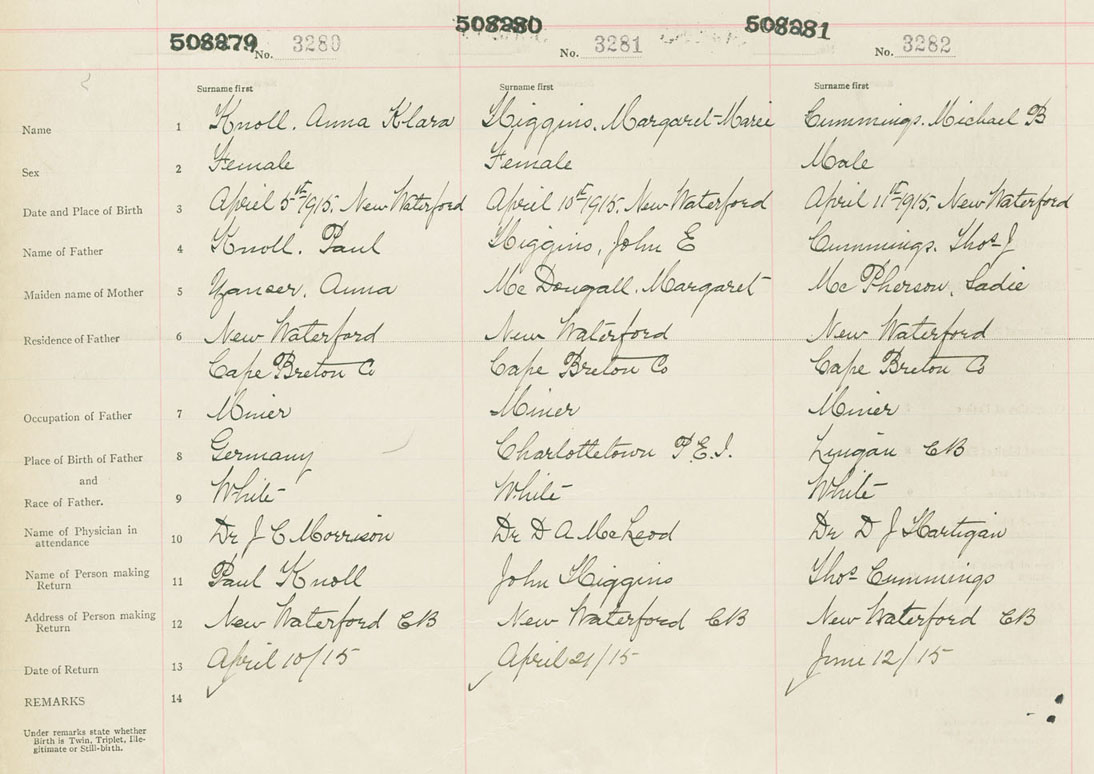 508279 508280 508281
No. 3280 No. 3281 No. 3282
Surname first Surname first Surname first
Name 1 Knoll. Anna Klara Higgins, Margaret-Marie Cummings. Michael B
Sex 2 Female Female Male
Date and Place of Birth 3 April 5th 1915, New Waterford April 10th 1915, New Waterford April 11th 1915, New Waterford
Name of Father 4 Knoll. Paul Higgins, John E Cummings. Thos J
Maiden name of Mother 5 Anna McDougall. Margaret McPherson, Sadie
Residence of Father 6 New Waterford New Waterford New Waterford
Cape Breton Co Cape Breton Co Cape Breton Co
Occupation of Father 7 Miner Miner Miner
Place of Birth of Father 8 Germany Charlottetown P.E.I. Lingan CB
and
Race of Father. 9 White White White
Name of Physician in
attendance 10 Dr J C Morrison Dr D A McLeod Dr D J Hartigan
Name of Person making
Return 11 Paul Knoll John Higgins Thos Cummings
Address of Person making
Return 12 New Waterford CB New Waterford CB New Waterford CB
Date of Return 13 April 10/15 April 21/15 June 12/15
REMARKS 14
Under remarks state whether
Birth is Twin, Triplet, Ille-
gitimate or Still-birth.